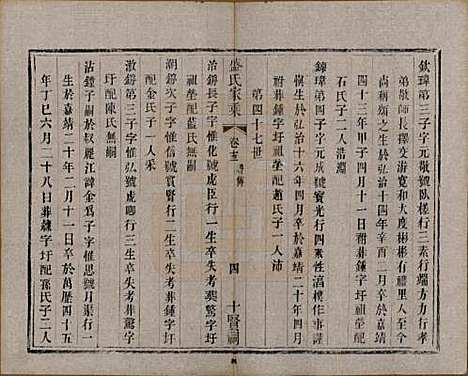 欽璋第三子字元敬號臥槎行三素行端方力行孝
弟敬師長擇交濟寬和大度彬彬有儒者風人皆
尚稱頌之生於弘治十四年辛酉二月
四十三年甲子四月十一日祔葬鍾字圩祖塋配
石氏子二人浩淵
鍊璋第四子字元 號寶光行四素性清樸作事謹
慎生於弘治十六年四月辛於嘉靖二十年四月
祔葬鍾字圩祖塋配趙氏子一人沛
第四十七世
盛氏家乘
卷十三
四
十賢祠
治鍔長子字惟化號成臣行一生卒失考葬驚字圩
祖塋配 氏無嗣
湖鍔次子字惟信號賓賢行二生卒失考葬驚字圩
配金氏子一人采
漵鍔第三子字惟弘號虛卿行三生卒失考葬驚字
圩配陳氏無嗣
沾鐘子嗣於叔麗江諱金為子字惟思號月渠行一
生於嘉靖二十年二月十一日卒於萬歷四十五
年丁巳六月二十八日葬虧字圩配孫氏子二人